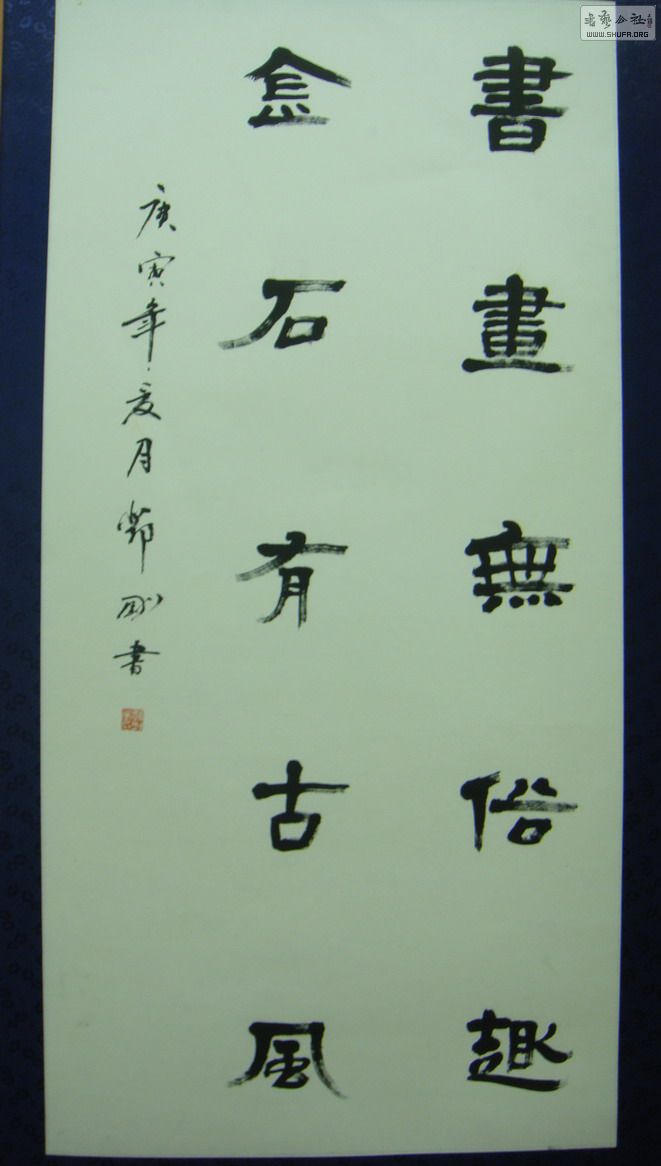 書畫無俗趣
金石有古風
庚寅年夏月鄧剛書
書藝公社
WWW.SHUFA.ORG